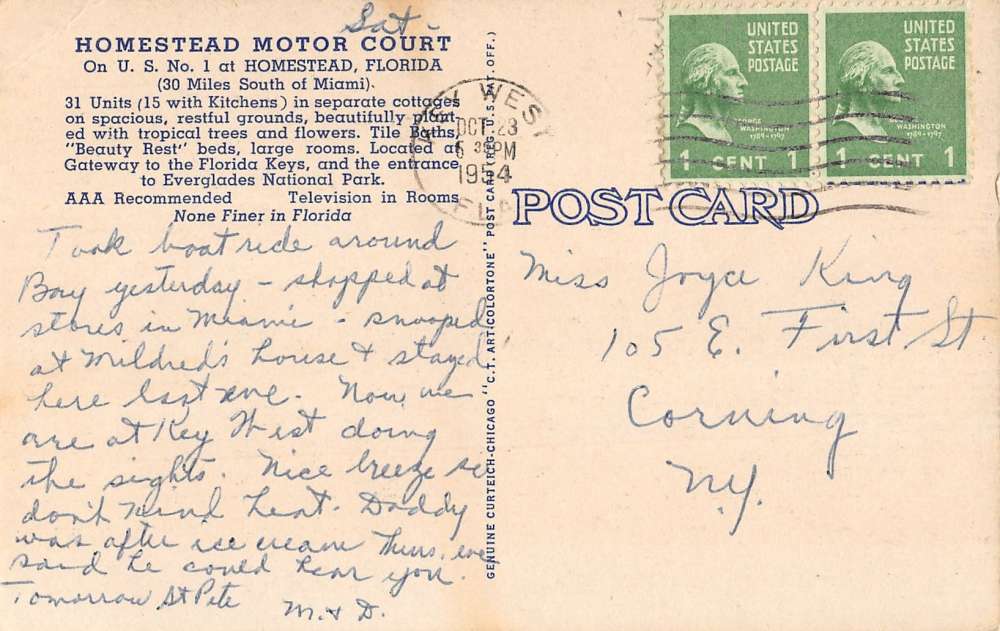 Sat-
HOMESTEAD MOTOR COURT
On U. S. No. 1 at HOMESTEAD, FLORIDA
(30 Miles South of Miami)
31 Units (15 with Kitchens) in separate cottages
on spacious, restful grounds, beautifully plant-
ed with tropical trees and flowers. Tile Baths,
"Beauty Rest" beds, large rooms. Located at
Gateway to the Florida Keys, and the entrance
to Everglades National Park.
AAA Recommended Television in Rooms
None Finer in Florida
Took boat ride around
Bay yesterday - shopped at
stores in Miami - snooped
at Mildred's house & stayed
here last eve. Now we
are at Key West doing
the sights. Nice breeze so
don't mind heat. Daddy
was after ice cream Thurs. eve
said he could hear you.
Tomorrow St Pete
M. & D.
GENUINE CURTEICH-CHICAGO "C. T. ART-COLORTONE" POST CARD (REG. U. S. PAT. OFF.)
KEY WEST
OCT 23
PM
1954
FLA
UNITED
STATES
POSTAGE
GEORGE
WASHINGTON
1789-1797
1 CENT 1
UNITED
STATES
POSTAGE
WASHINGTON
1789-1797
1 CENT 1
POST CARD
Miss Joyce King
105 E. First St
Corning
N.Y.